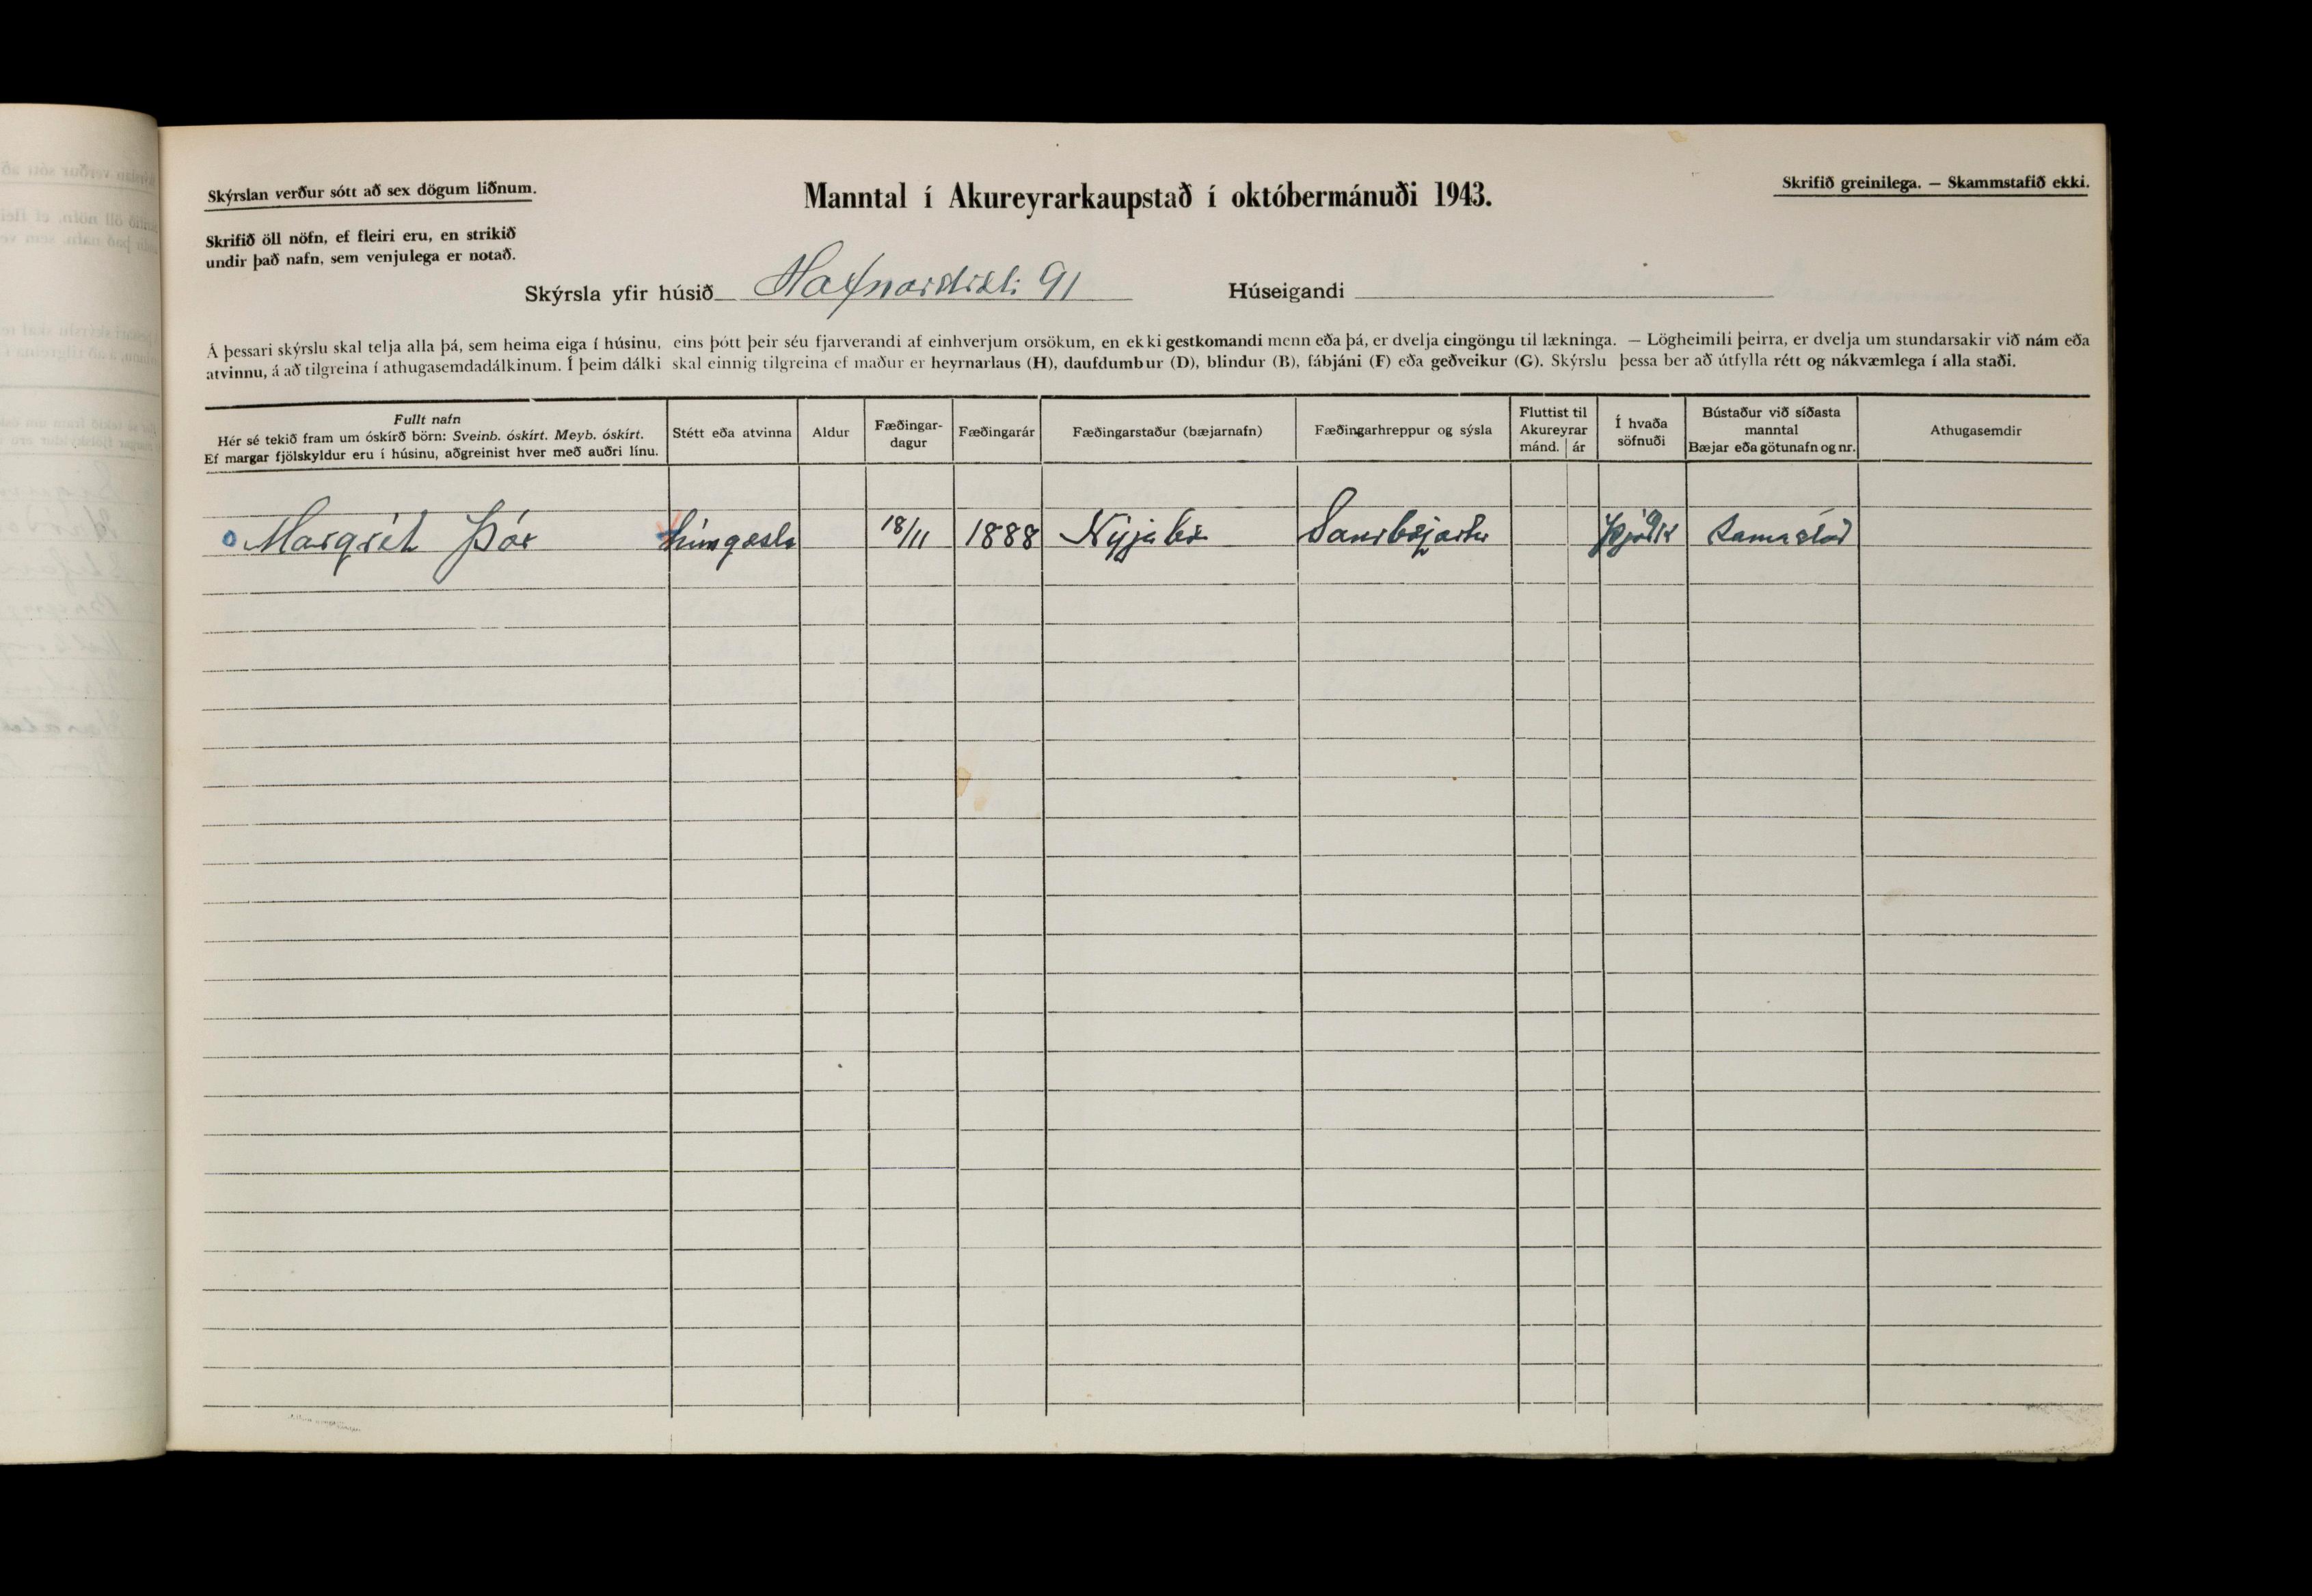 Skýrslan verður sótt að sex dögum liðnum.
Manntal í Akureyrarkaupstað í októbermánuði 1943.
Skrifið greinilega. — Skammstafið ekki.
Skrifið öll nöfn, ef fleiri eru, en strikið
undir það nafn, sem venjulega er notað.
Skýrsla yfir húsið Hafnarstræti 91 Húseigandi
Á þessari skýrslu skal telja alla þá, sem heima eiga í húsinu, eins þótt þeir séu fjarverandi af einhverjum orsökum, en ekki gestkomandi menn eða þá, er dvelja eingöngu til lækninga. — Lögheimili þeirra, er dvelja um stundarsakir við nám eða
atvinnu, á að tilgreina í athugasemdadálkinum. Í þeim dálki skal einnig tilgreina ef maður er heyrnarlaus (H), daufdumbur (D), blindur (B), fábjáni (F) eða geðveikur (G). Skýrslu þessa ber að útfylla rétt og nákvæmlega í alla staði.
Fullt nafn
Hér sé tekið fram um óskírð börn: Sveinb. óskírt. Meyb. óskírt.
Ef margar fjölskyldur eru í húsinu, aðgreinist hver með auðri línu.
Stétt eða atvinna
Aldur
Fæðingar-
dagur
Fæðingarár
Fæðingarstaður (bæjarnafn)
Fæðingarhreppur og sýsla
Fluttist til
Akureyrar
mánd. ár
Í hvaða
söfnuði
Bústaður við síðasta
manntal
Bæjar eða götunafn og nr.
Athugasemdir
Margrét Þór 18/11 1888 Nýjabæ Saurbæjarhr Þjóðk Sama stað